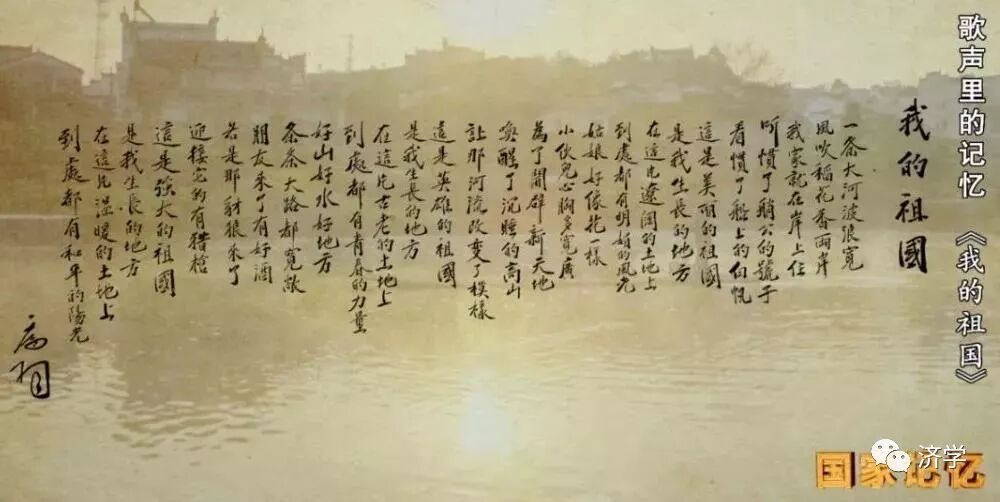 歌声里的记忆 《我的祖国》
我的祖國
一条大河波浪寬
風吹稻花香兩岸
我家就在岸上住
听慣了艄公的號子
看慣了船上的白帆
這是美丽的祖國
是我生長的地方
在這片遼阔的土地上
到處都有明媚的風光
姑娘好像花一樣
小伙兒心胸多寬廣
為了開辟新天地
喚醒了沉睡的高山
讓那河流改變了模樣
這是英雄的祖國
是我生長的地方
在這片古老的土地上
到處都有青春的力量
好山好水好地方
条条大路都寬敞
朋友来了有好酒
若是那豺狼来了
迎接它的有猎槍
這是强大的祖國
是我生長的地方
在這片温暖的土地上
到處都有和平的陽光
国家记忆
济学